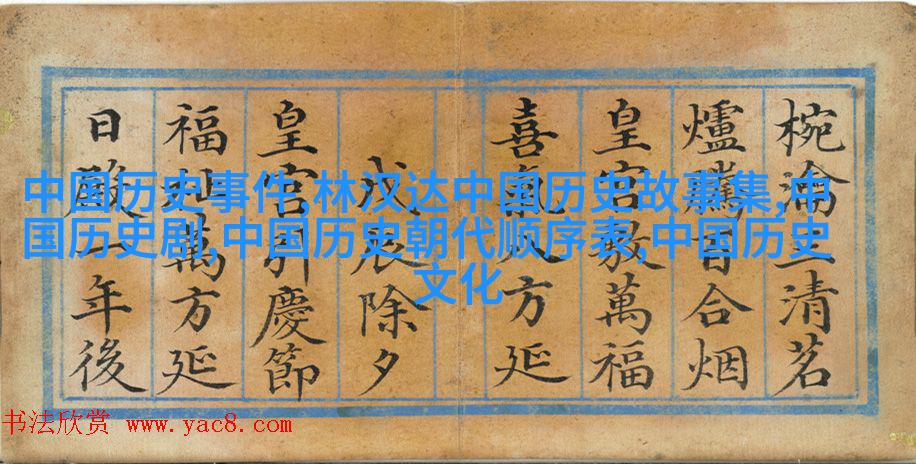 椀瀹三清茗
爐騰百合烟
皇宮敷萬福
喜氣八方延
戊辰除夕
皇宮引慶節
福萬方延
日殿一年後
中国历史事件,林汉达中国历史故事集,中
国历史剧,中国历史朝代顺序表,中国历史
文化
书法欣赏 www.yac8.com